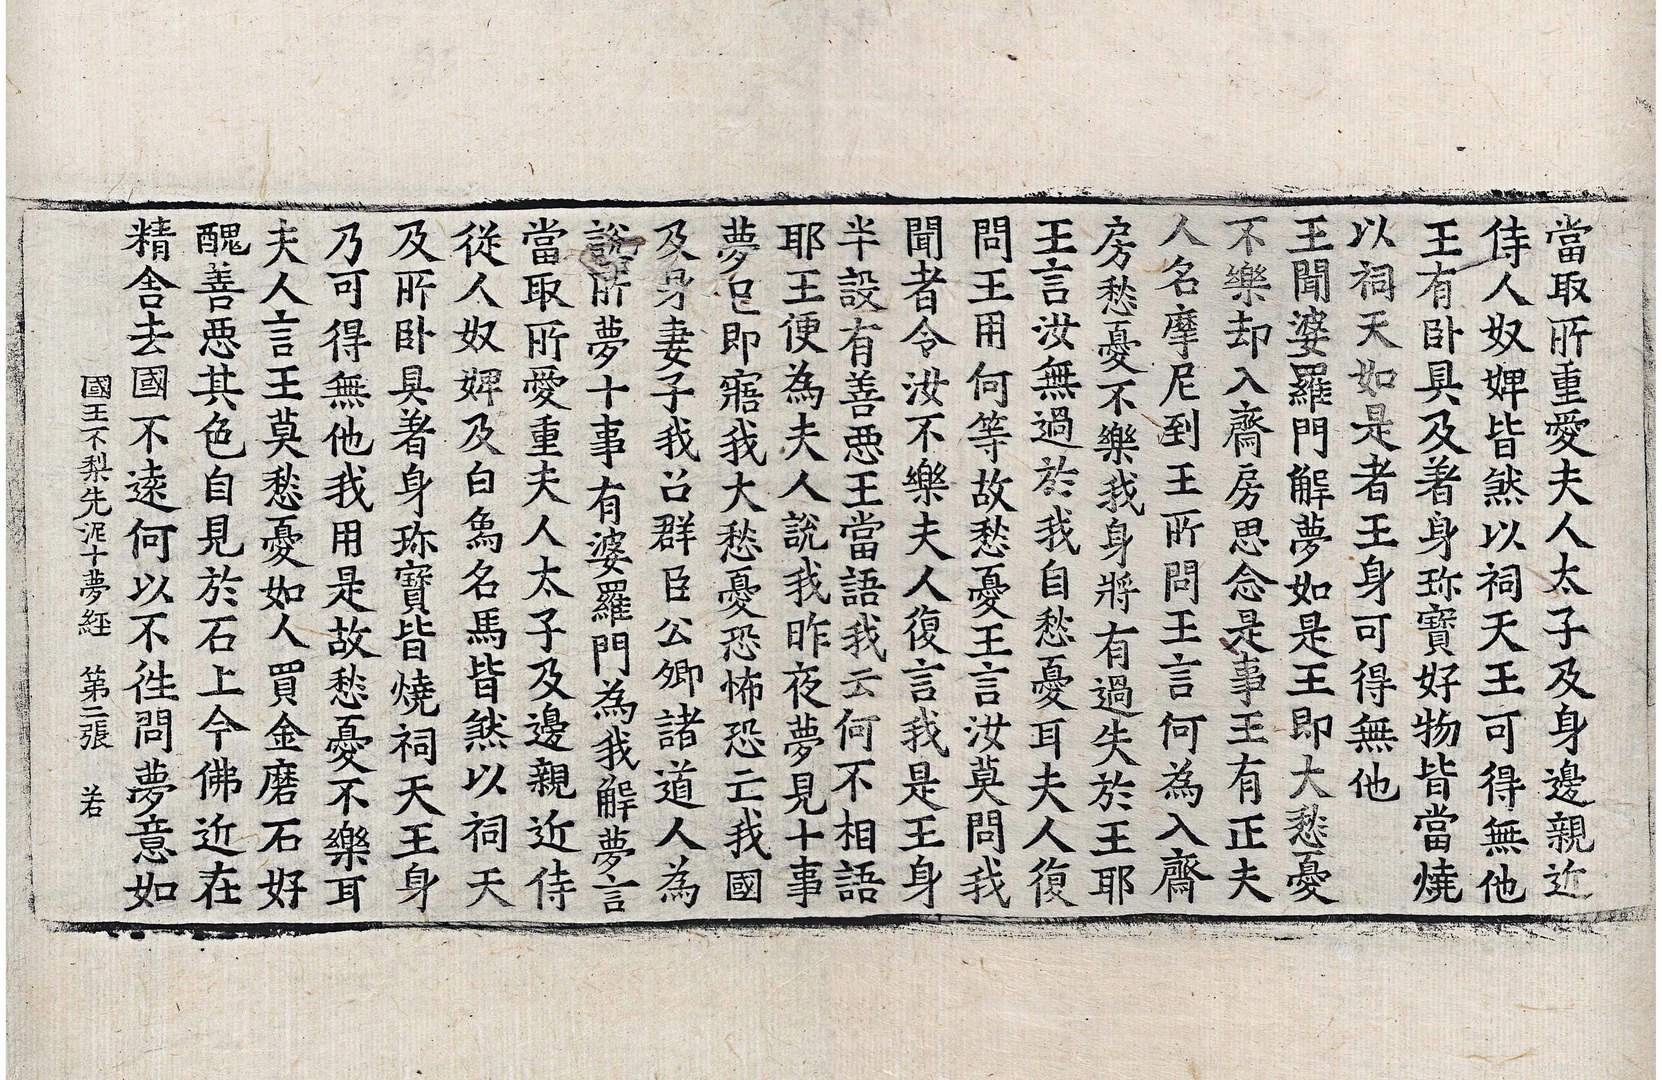 當取所重愛夫人太子及身邊親近
侍人奴婢皆煞以祠天王可得無他
王有卧具及著身珎寶好物皆當燒
以祠天如是者王身可得無他
王聞婆羅門解夢如是王即大愁憂
不樂却入齋房思念是事王有正夫
人名摩尼到王所問王言何為入齋
房愁憂不樂我身將有過失於王耶
王言汝無過於我自愁憂耳夫人復
問王用何等故愁憂王言汝莫問我
聞者令汝不樂夫人復言我是王身
半設有善惡王當語我云何不相語
耶王便為夫人說我昨夜夢見十事
夢已即寤我大愁憂恐怖恐亡我國
及身妻子我召群臣公卿諸道人為
說所夢十事有婆羅門為我解夢言
當取所愛重夫人太子及邊親近侍
從人奴婢及白魚名馬皆煞以祠天
及所卧具著身珎寶皆燒祠天王身
乃可得無他我用是故愁憂不樂耳
夫人言王莫愁憂如人買金磨石好
醜善惡其色自見於石上今佛近在
精舍去國不遠何以不徃問夢意如
國王不梨先泥十夢經　第二張　若